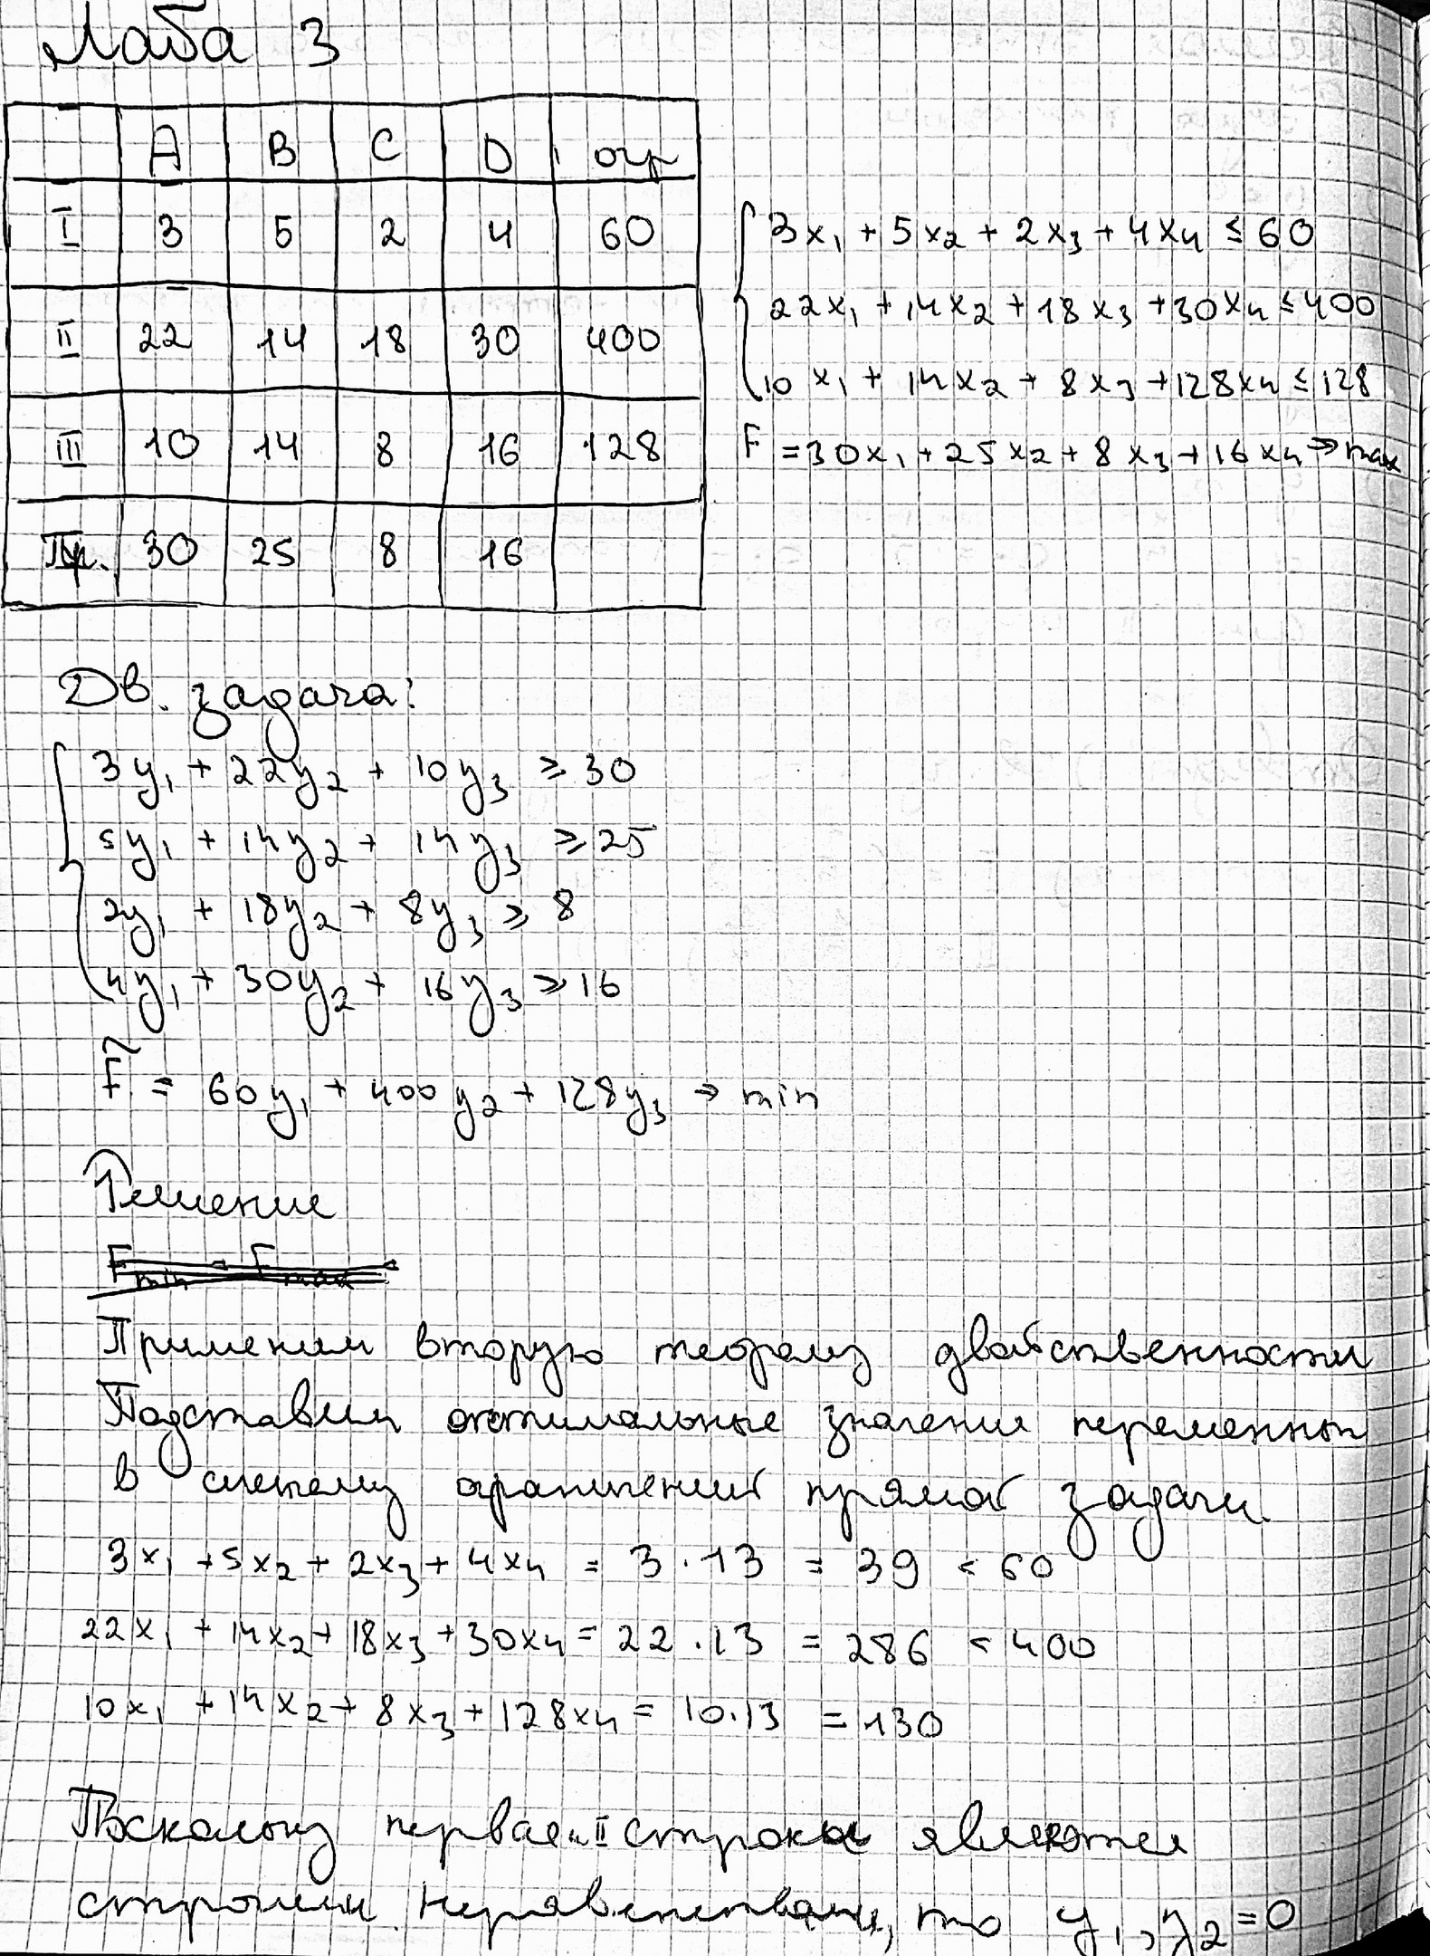 Лаба 3
A B C D огр
I 3 5 2 4 60
II 22 14 18 30 400
III 10 14 8 16 128
Пр. 30 25 8 16
3x₁ + 5x₂ + 2x₃ + 4x₄ ≤ 60
22x₁ + 14x₂ + 18x₃ + 30x₄ ≤ 400
10x₁ + 14x₂ + 8x₃ + 128x₄ ≤ 128
F = 30x₁ + 25x₂ + 8x₃ + 16x₄ → max
Дв. задача:
3y₁ + 22y₂ + 10y₃ ≥ 30
5y₁ + 14y₂ + 14y₃ ≥ 25
2y₁ + 18y₂ + 8y₃ ≥ 8
4y₁ + 30y₂ + 16y₃ ≥ 16
F̃ = 60y₁ + 400y₂ + 128y₃ → min
Решение
Fmin = Fmax
Применим вторую теорему двойственности
Подставим оптимальные значения переменных
в систему ограничений прямой задачи.
3x₁ + 5x₂ + 2x₃ + 4x₄ = 3 · 13 = 39 < 60
22x₁ + 14x₂ + 18x₃ + 30x₄ = 22 · 13 = 286 < 400
10x₁ + 14x₂ + 8x₃ + 128x₄ = 10 · 13 = 130
Поскольку первая и II строка являются
строгими неравенствами, то y₁, y₂ = 0